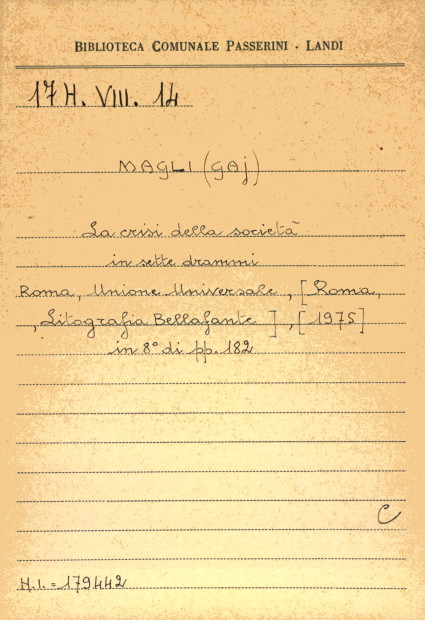 BIBLIOTECA COMUNALE PASSERINI - LANDI
17 H. VIII. 14
MAGLI (GAJ)
La crisi della società
in sette drammi
Roma, Unione Universale, [Roma,
, Litografia Bellafante], [1975]
in 8° di pp. 182
C
N.I. = 179442